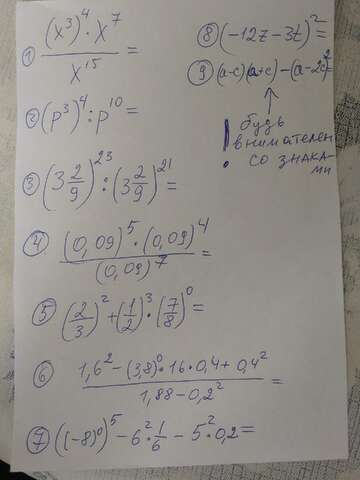 ① (x³)⁴ · x⁷ / x¹⁵ =
② (p³)⁴ : p¹⁰ =
③ (3 2/9)²³ : (3 2/9)²¹ =
④ (0,09)⁵ · (0,09)⁴ / (0,09)⁷ =
⑤ (2/3)² + (1/2)³ · (7/8)⁰ =
⑥ 1,6² − (3,8)⁰ · 16 · 0,4 + 0,4² / 1,88 − 0,2² =
⑦ ((−8)⁰)⁵ − 6² · 1/6 − 5² · 0,2 =
⑧ (−12z − 3t)² =
⑨ (a−c)(a+c) − (a−2c)² =
! будь
внимателен
со знака-
ми